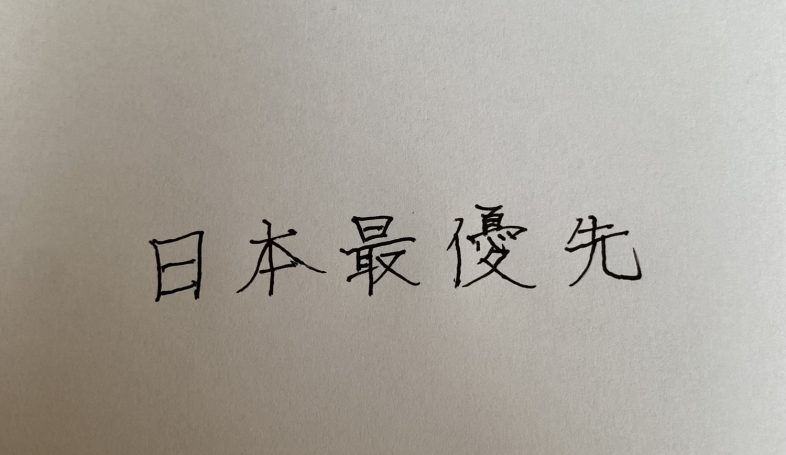 日本最優先